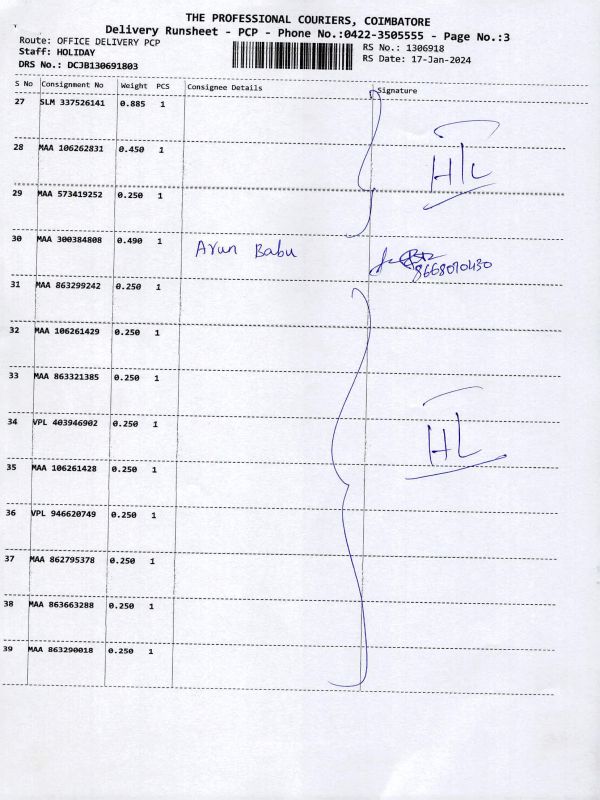 THE PROFESSIONAL COURIERS, COIMBATORE
Delivery Runsheet - PCP - Phone No.:0422-3505555 - Page No.:3
Route: OFFICE DELIVERY PCP
RS No.: 1306918
Staff: HOLIDAY
RS Date: 17-Jan-2024
DRS No.: DCJB130691803
S No Consignment No Weight PCS Consignee Details Signature
27 SLM 337526141 0.885 1
28 MAA 106262831 0.450 1
29 MAA 573419252 0.250 1
30 MAA 300384808 0.490 1 Arun Babu
8668010430
31 MAA 863299242 0.250 1
32 MAA 106261429 0.250 1
33 MAA 863321385 0.250 1
34 VPL 403946902 0.250 1
35 MAA 106261428 0.250 1
36 VPL 946620749 0.250 1
37 MAA 862795378 0.250 1
38 MAA 863663288 0.250 1
39 MAA 863290018 0.250 1